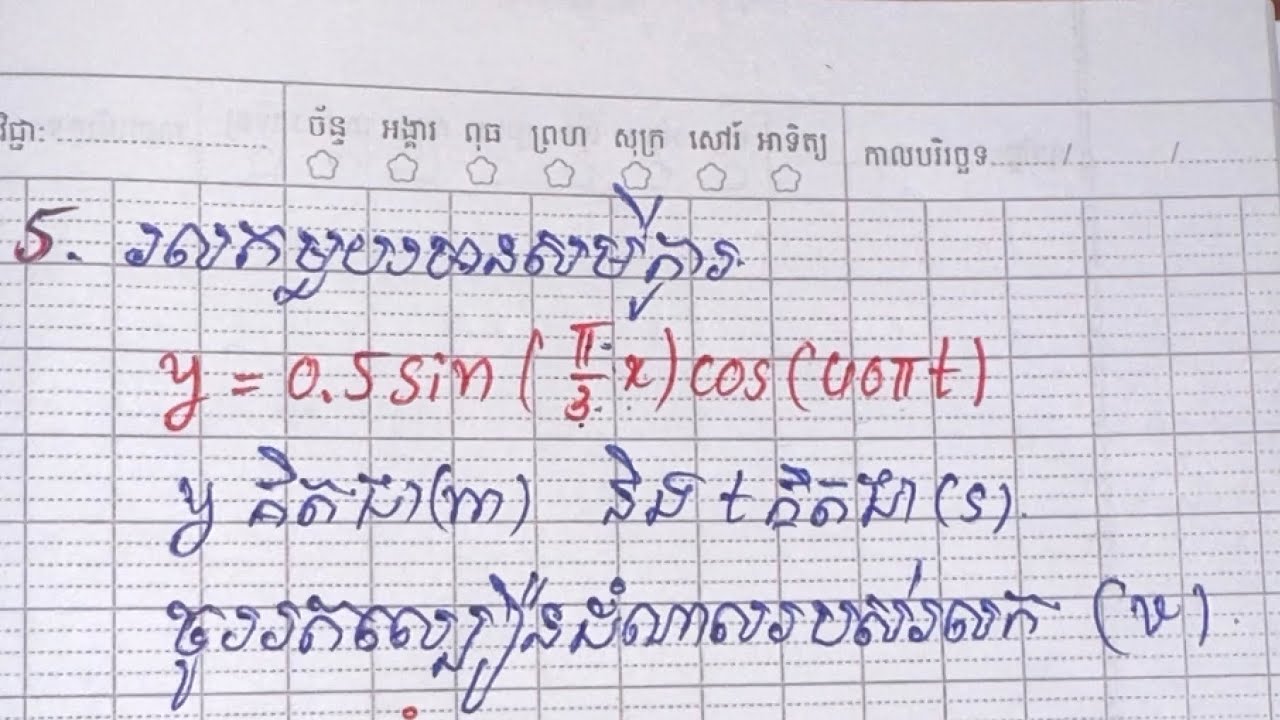 វិជ្ជា: ច័ន្ទ អង្គារ ពុធ ព្រហ សុក្រ សៅរ៍ អាទិត្យ កាលបរិច្ឆេទ / /
5. រលកមួយមានសមីការ
y = 0.5 sin ( π/3 x ) cos (40πt)
y គិតជា (m) និង t គិតជា (s).
ចូររកល្បឿនដំណាលរបស់រលក (v).